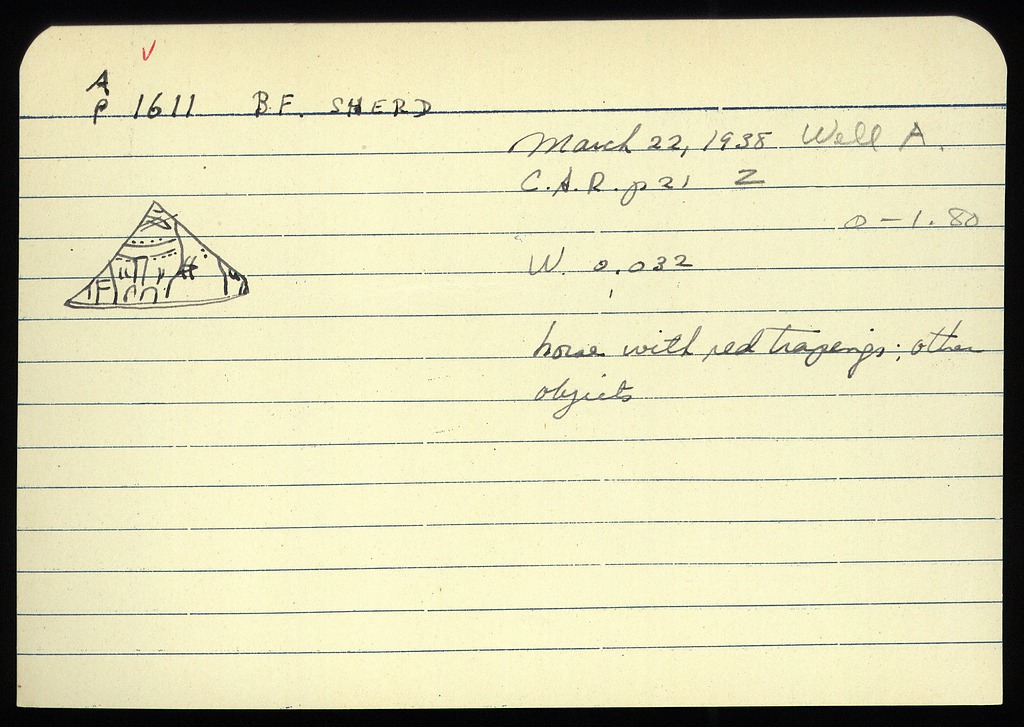 A
P 1611 B.F. SHERD
March 22, 1938 Well A.
C.A.R. p 21 Z
0 – 1.80
W. 0.032
horse with red trapings; other
objects